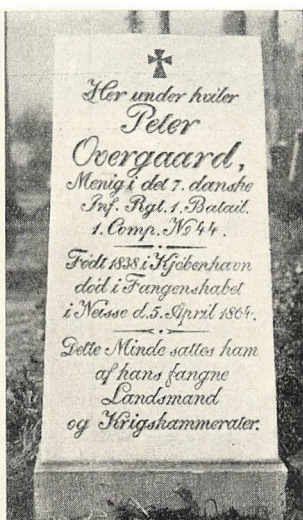 Her under hviler
Peter
Overgaard,
Menig i det 7. danske
Inf. Rgt. 1. Batail.
1. Comp. No 44.
Født 1838 i Kjöbenhavn
död i Fangenskabet
i Neisse d. 5. April 1864.
Dette Minde sattes ham
af hans fangne
Landsmænd
og Krigskammerater.